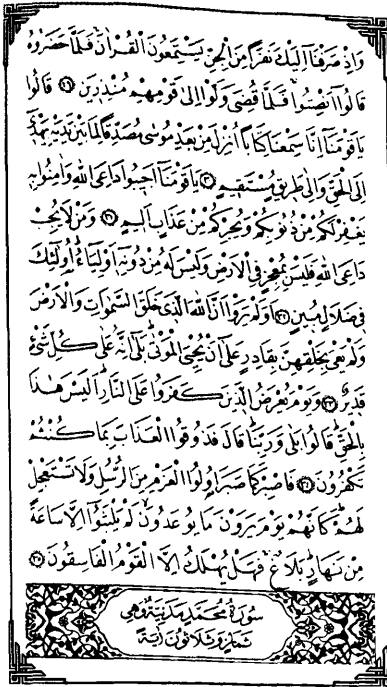 وَاِذْ صَرَفْنَٓا اِلَيْكَ نَفَرًا مِنَ الْجِنِّ يَسْتَمِعُونَ الْقُرْاٰنَ فَلَمَّا حَضَرُوهُ
قَالُٓوا اَنْصِتُوا فَلَمَّا قُضِيَ وَلَّوْا اِلٰى قَوْمِهِمْ مُنْذِرِينَ ﴿٢٩﴾ قَالُوا
يَا قَوْمَنَٓا اِنَّا سَمِعْنَا كِتَابًا اُنْزِلَ مِنْ بَعْدِ مُوسٰى مُصَدِّقًا لِمَا بَيْنَ يَدَيْهِ يَهْدِٓي
اِلَى الْحَقِّ وَاِلٰى طَرِيقٍ مُسْتَقِيمٍ ﴿٣٠﴾ يَا قَوْمَنَٓا اَجِيبُوا دَاعِيَ اللهِ وَاٰمِنُوا بِهِ
يَغْفِرْ لَكُمْ مِنْ ذُنُوبِكُمْ وَيُجِرْكُمْ مِنْ عَذَابٍ اَلِيمٍ ﴿٣١﴾ وَمَنْ لَا يُجِبْ
دَاعِيَ اللهِ فَلَيْسَ بِمُعْجِزٍ فِي الْاَرْضِ وَلَيْسَ لَهُ مِنْ دُونِهِٓ اَوْلِيَٓاءُ اُو۬لٰٓئِكَ
فِي ضَلَالٍ مُبِينٍ ﴿٣٢﴾ اَوَلَمْ يَرَوْا اَنَّ اللهَ الَّذِي خَلَقَ السَّمٰوَاتِ وَالْاَرْضَ
وَلَمْ يَعْيَ بِخَلْقِهِنَّ بِقَادِرٍ عَلٰٓى اَنْ يُحْيِيَ الْمَوْتٰى بَلٰٓى اِنَّهُ عَلٰى كُلِّ شَيْءٍ
قَدِيرٌ ﴿٣٣﴾ وَيَوْمَ يُعْرَضُ الَّذِينَ كَفَرُوا عَلَى النَّارِ اَلَيْسَ هٰذَا
بِالْحَقِّ قَالُوا بَلٰى وَرَبِّنَا قَالَ فَذُوقُوا الْعَذَابَ بِمَا كُنْتُمْ
تَكْفُرُونَ ﴿٣٤﴾ فَاصْبِرْ كَمَا صَبَرَ اُو۬لُوا الْعَزْمِ مِنَ الرُّسُلِ وَلَا تَسْتَعْجِلْ
لَهُمْ كَاَنَّهُمْ يَوْمَ يَرَوْنَ مَا يُوعَدُونَ لَمْ يَلْبَثُٓوا اِلَّا سَاعَةً
مِنْ نَهَارٍ بَلَاغٌ فَهَلْ يُهْلَكُ اِلَّا الْقَوْمُ الْفَاسِقُونَ ﴿٣٥﴾
سُورَةُ مُحَمَّدٍ مَدَنِيَّةٌ وَهِيَ
ثَمَانٍ وَثَلَاثُونَ اٰيَةً